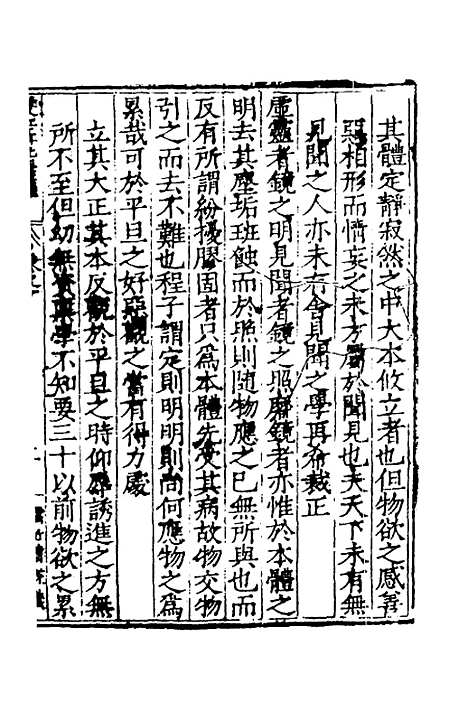 其體定靜寂然之中大本攸立者也但物欲之感善
惡相形而情妄之未方屬於聞見也夫天下未有無
見聞之人亦未有舍見聞之學再希裁正
虛靈者鏡之明見聞者鏡之照磨鏡者亦惟於本體之
明去其塵垢班蝕而於照則隨物應之已無所與也而
反有所謂紛擾膠固者只為本體先受其病故物交物
引之而去不難也程子謂定則明明則尚何應物之為
累哉可於平旦之好惡觀之當有得力處
立其大正其本反觀於平旦之時仰辱誘進之方無
所不至但幼無學不知要三十以前物欲之累